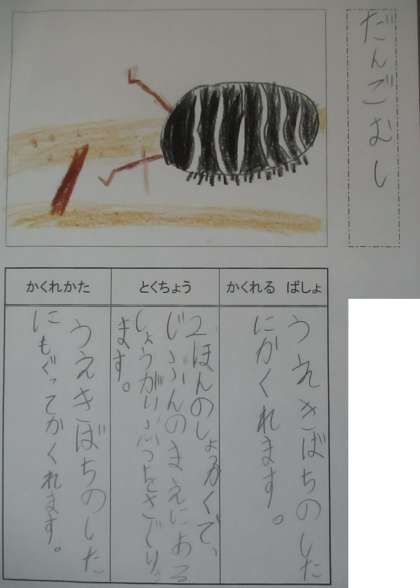 だんごむし
かくれる ばしょ
うえきばちのした
にかくれます。
とくちょう
2ほんのしょっかくで、
じぶんのまえにある
しょうがいぶつをさぐり
ます。
かくれかた
うえきばちのした
にもぐってかくれます。